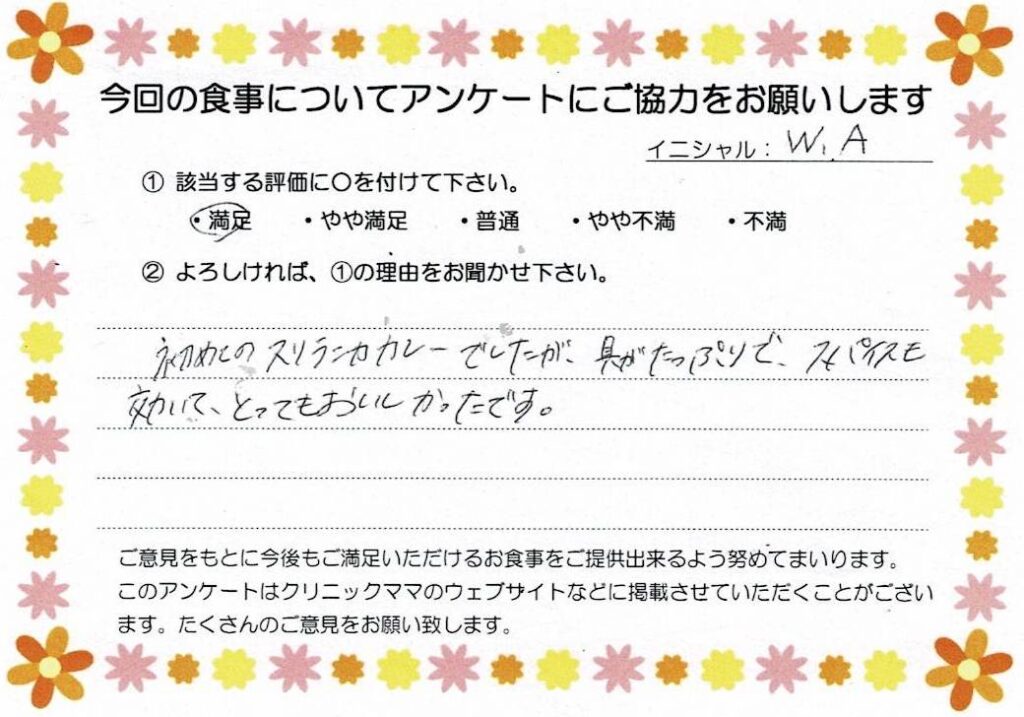 今回の食事についてアンケートにご協力をお願いします
イニシャル： W. A
① 該当する評価に〇を付けて下さい。
・満足 ・やや満足 ・普通 ・やや不満 ・不満
② よろしければ、①の理由をお聞かせ下さい。
初めてのスリランカカレーでしたが、具がたっぷりで、スパイスも
効いて、とってもおいしかったです。
ご意見をもとに今後もご満足いただけるお食事をご提供出来るよう努めてまいります。
このアンケートはクリニックママのウェブサイトなどに掲載させていただくことがござい
ます。たくさんのご意見をお願い致します。